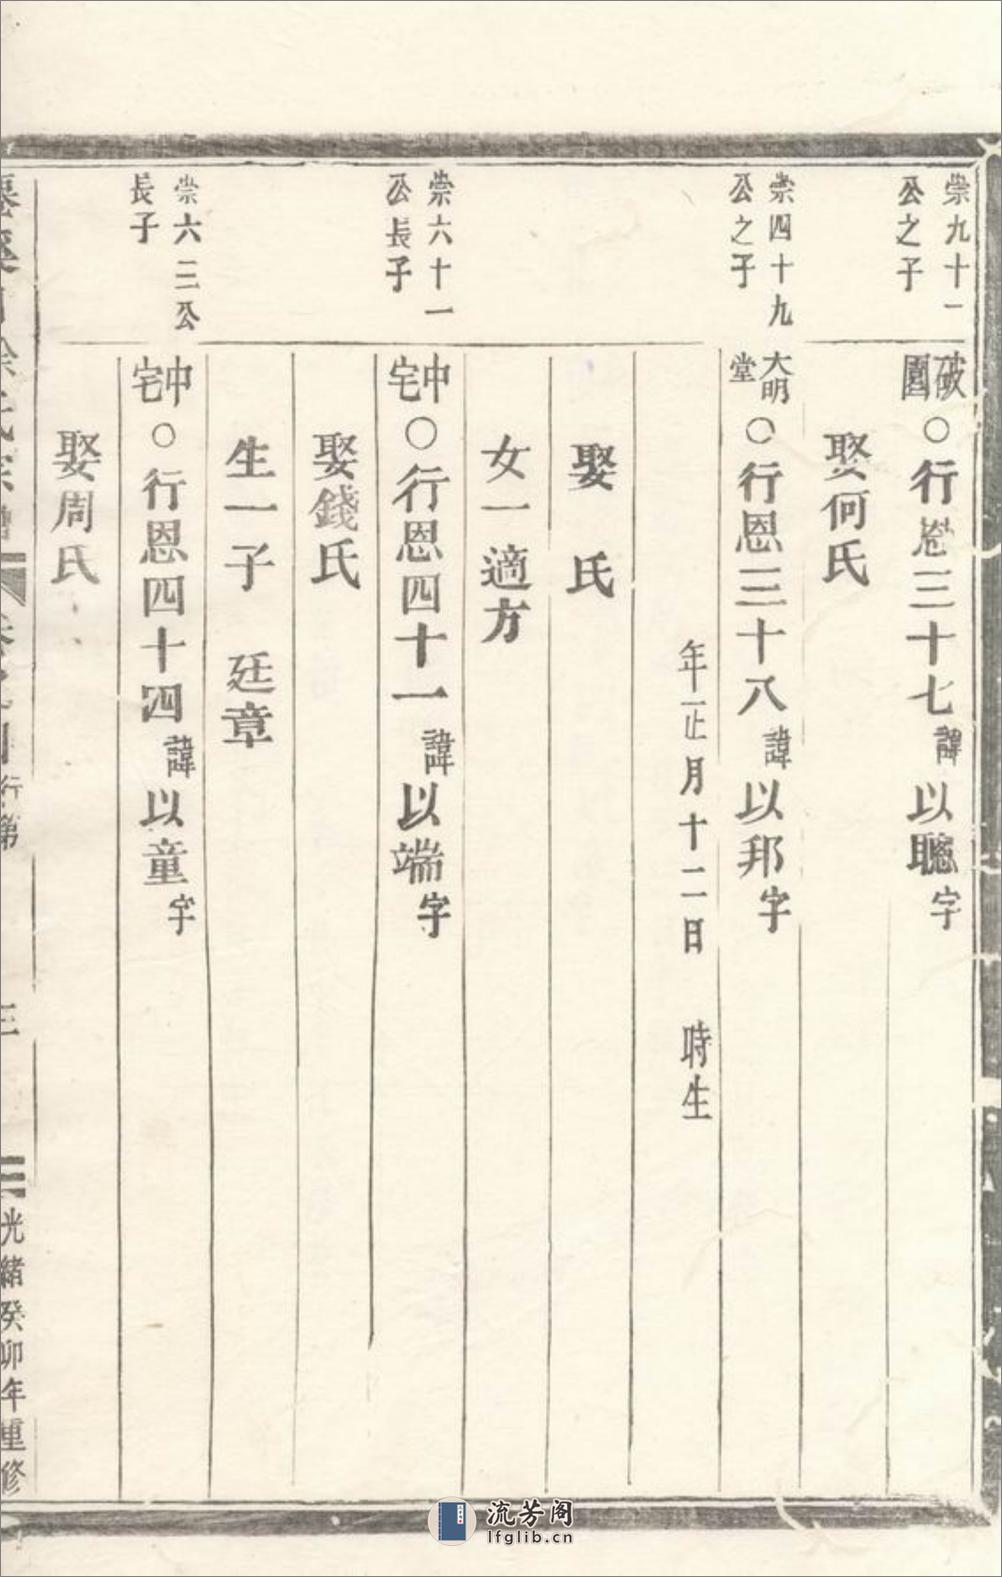 崇九十一
公之子
破
園
○行㤙三十七諱以聰字
娶何氏
崇四十九
公之子
大明
堂
○行恩三十八諱以邦字
年正月十二日 時生
娶 氏
女一適方
崇六十一
公長子
中
宅
○行恩四十一諱以端字
娶錢氏
生一子 廷章
崇六三公
長子
中
宅
○行恩四十四諱以童字
娶周氏
氏宗譜
行第
三
光緒癸卯年重修
流芳阁
lfglib.cn